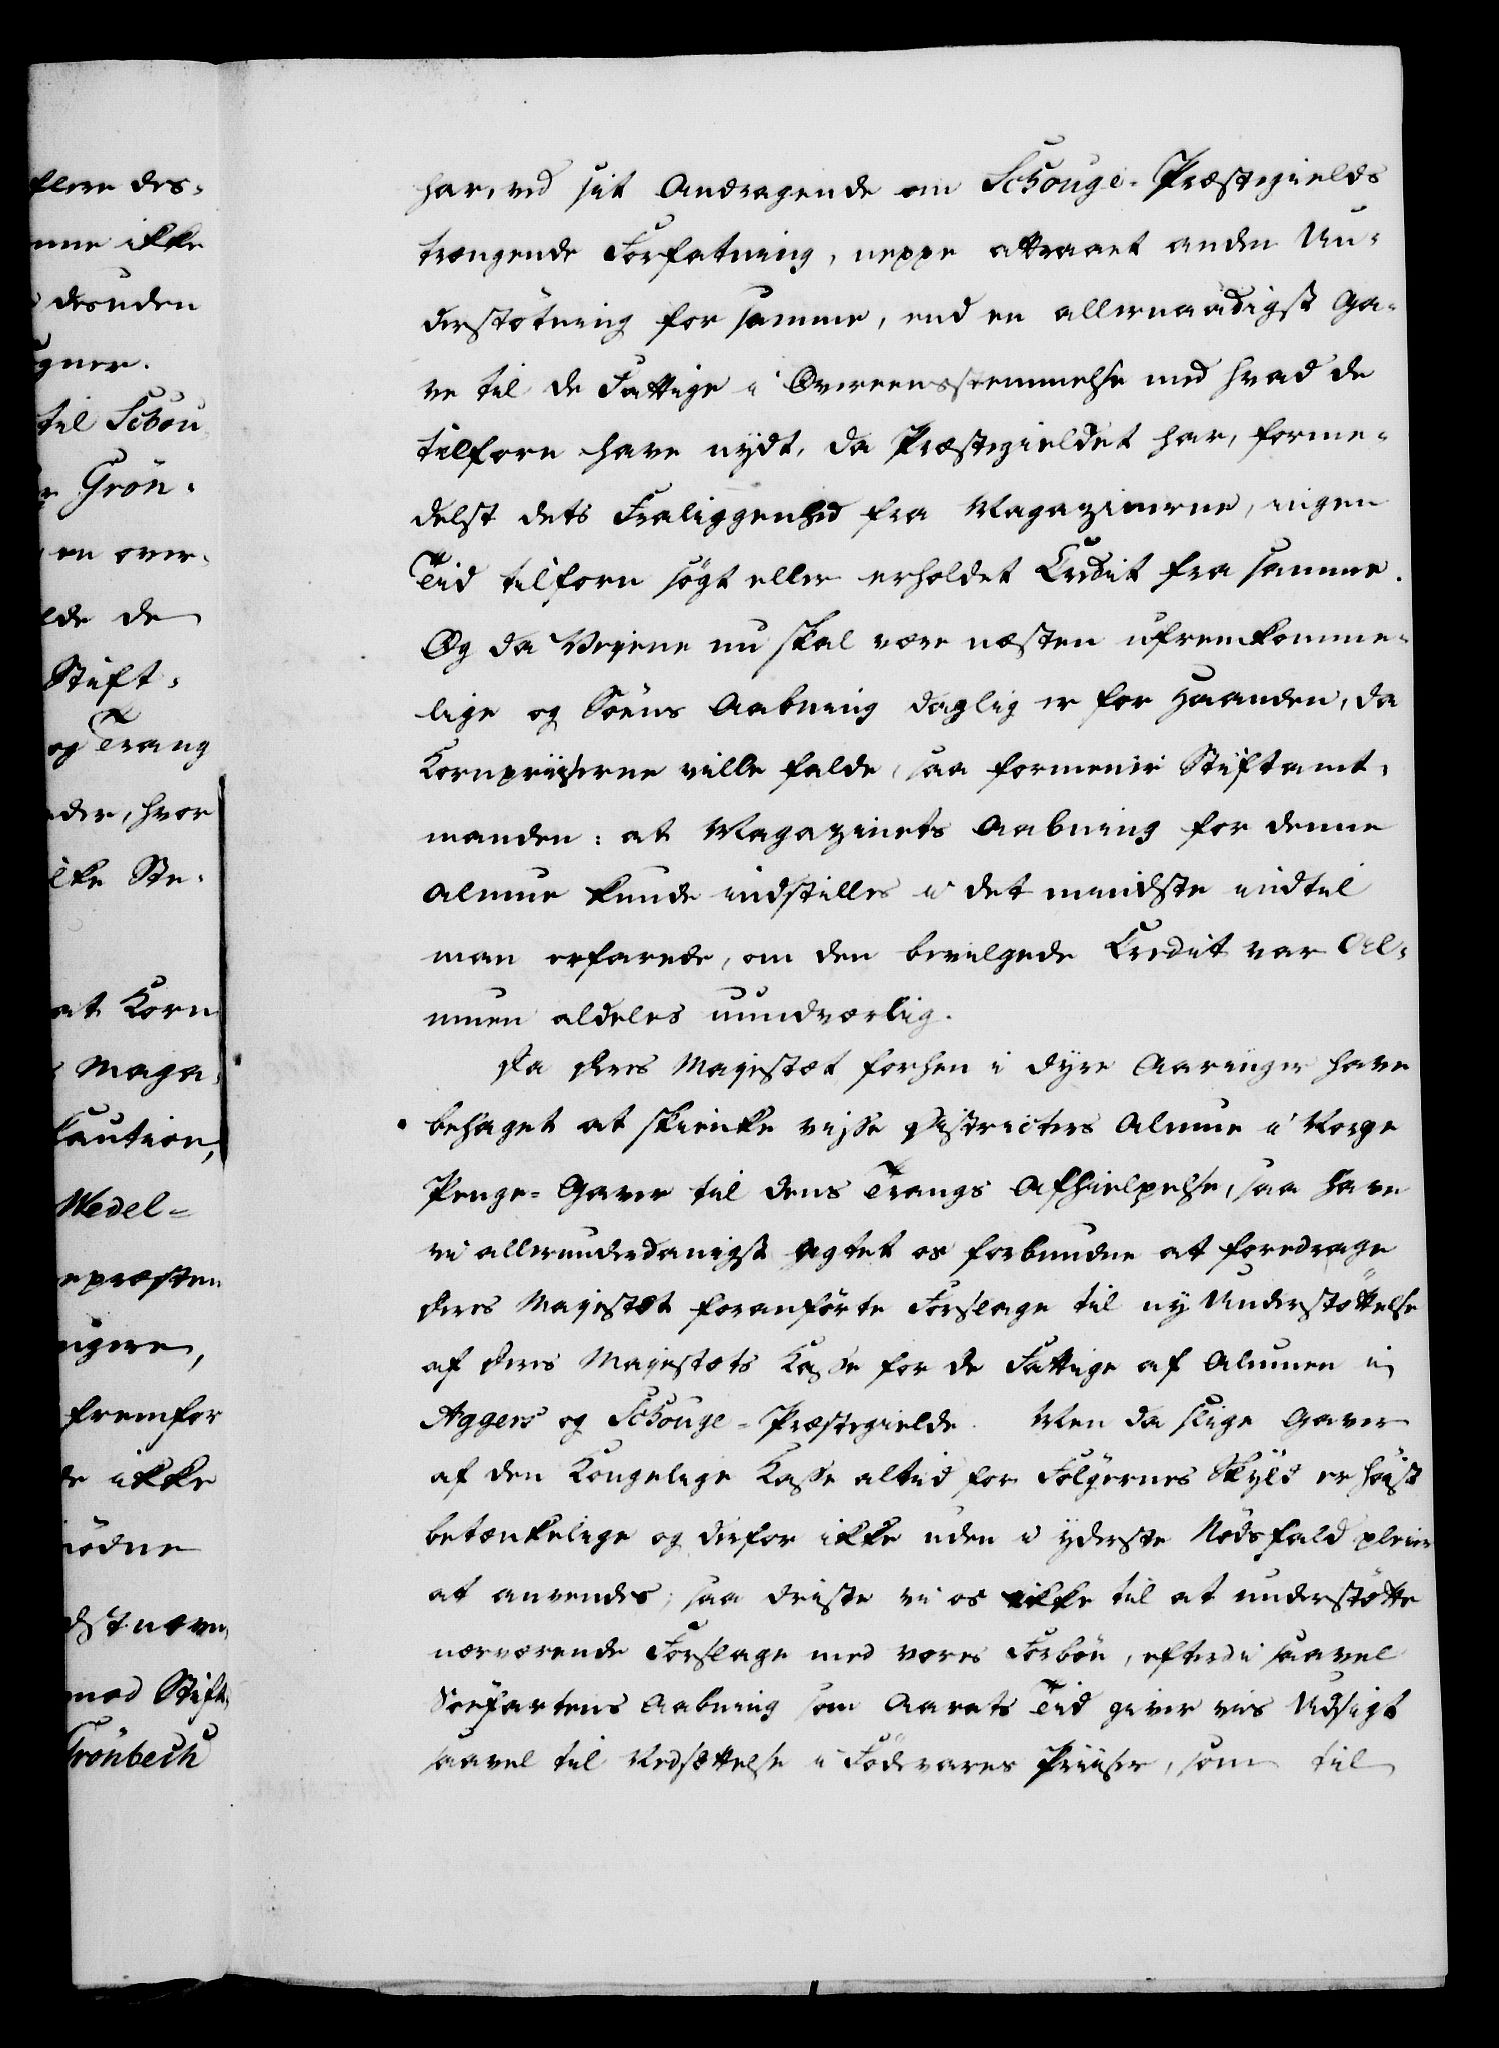 flere des-
nne ikke
desuden
gner.
til Schou
Grön-
en over-
lde de
Stift-
og Trang
der, hvor
ilke Ste-
at Korn
Maga-
Caution,
Wedel-
epræsten
ngere,
fremfor
de ikke
nödne
dstnævn
mod Stift
Grönbech
har, ved sit Andragende om Schouge-Præstegields
trængende Forfatning, neppe attraaet anden Un-
derstötning for samme, end en allernaadigst Ga-
ve til de Fattige i Overeensstemmelse med hvad de
tilforn have nydt, da Præstegieldet har, forme-
delst dets Fraliggenhed fra Magazinerne, ingen
Tid tilforn sögt eller erholdet Credit fra samme.
Og da Veiene nu skal være næsten ufremkomme-
lige og Söens Aabning daglig er for Haanden, da
Kornpriiserne ville falde, saa formener Stiftamt-
manden: at Magazinets Aabning for denne
Almue kunde indstilles i det mindste indtil
man erfarede, om den bevilgede Credit var Al-
muen aldeles uundværlig.
Da Deres Majestæt forhen i dyre Aaringer have
behaget at skienke visse Districters Almue i Norge
Penge-Gaver til dens Trangs Afhielpelse, saa have
vi allerunderdanigst agtet os forbundne at foredrage
Deres Majestæt foranförte Forslage til ny Understöttelse
af Deres Majestæts Kasse for de Fattige af Almuen i
Aggers og Schouge-Præstegielde. Men da slige Gaver
af den Kongelige Kasse altid for Fölgernes Skyld er höist
betænkelige og derfor ikke uden i yderste Nödsfald pleier
at anvendes, saa driste vi os ikke til at understötte
nærværende Forslage med vores Forbön, efterdi saavel
Söefartens Aabning som Aarets Tid giver vis Udsigt
saavel til Nedsættelse i Födevares Priiser, som til